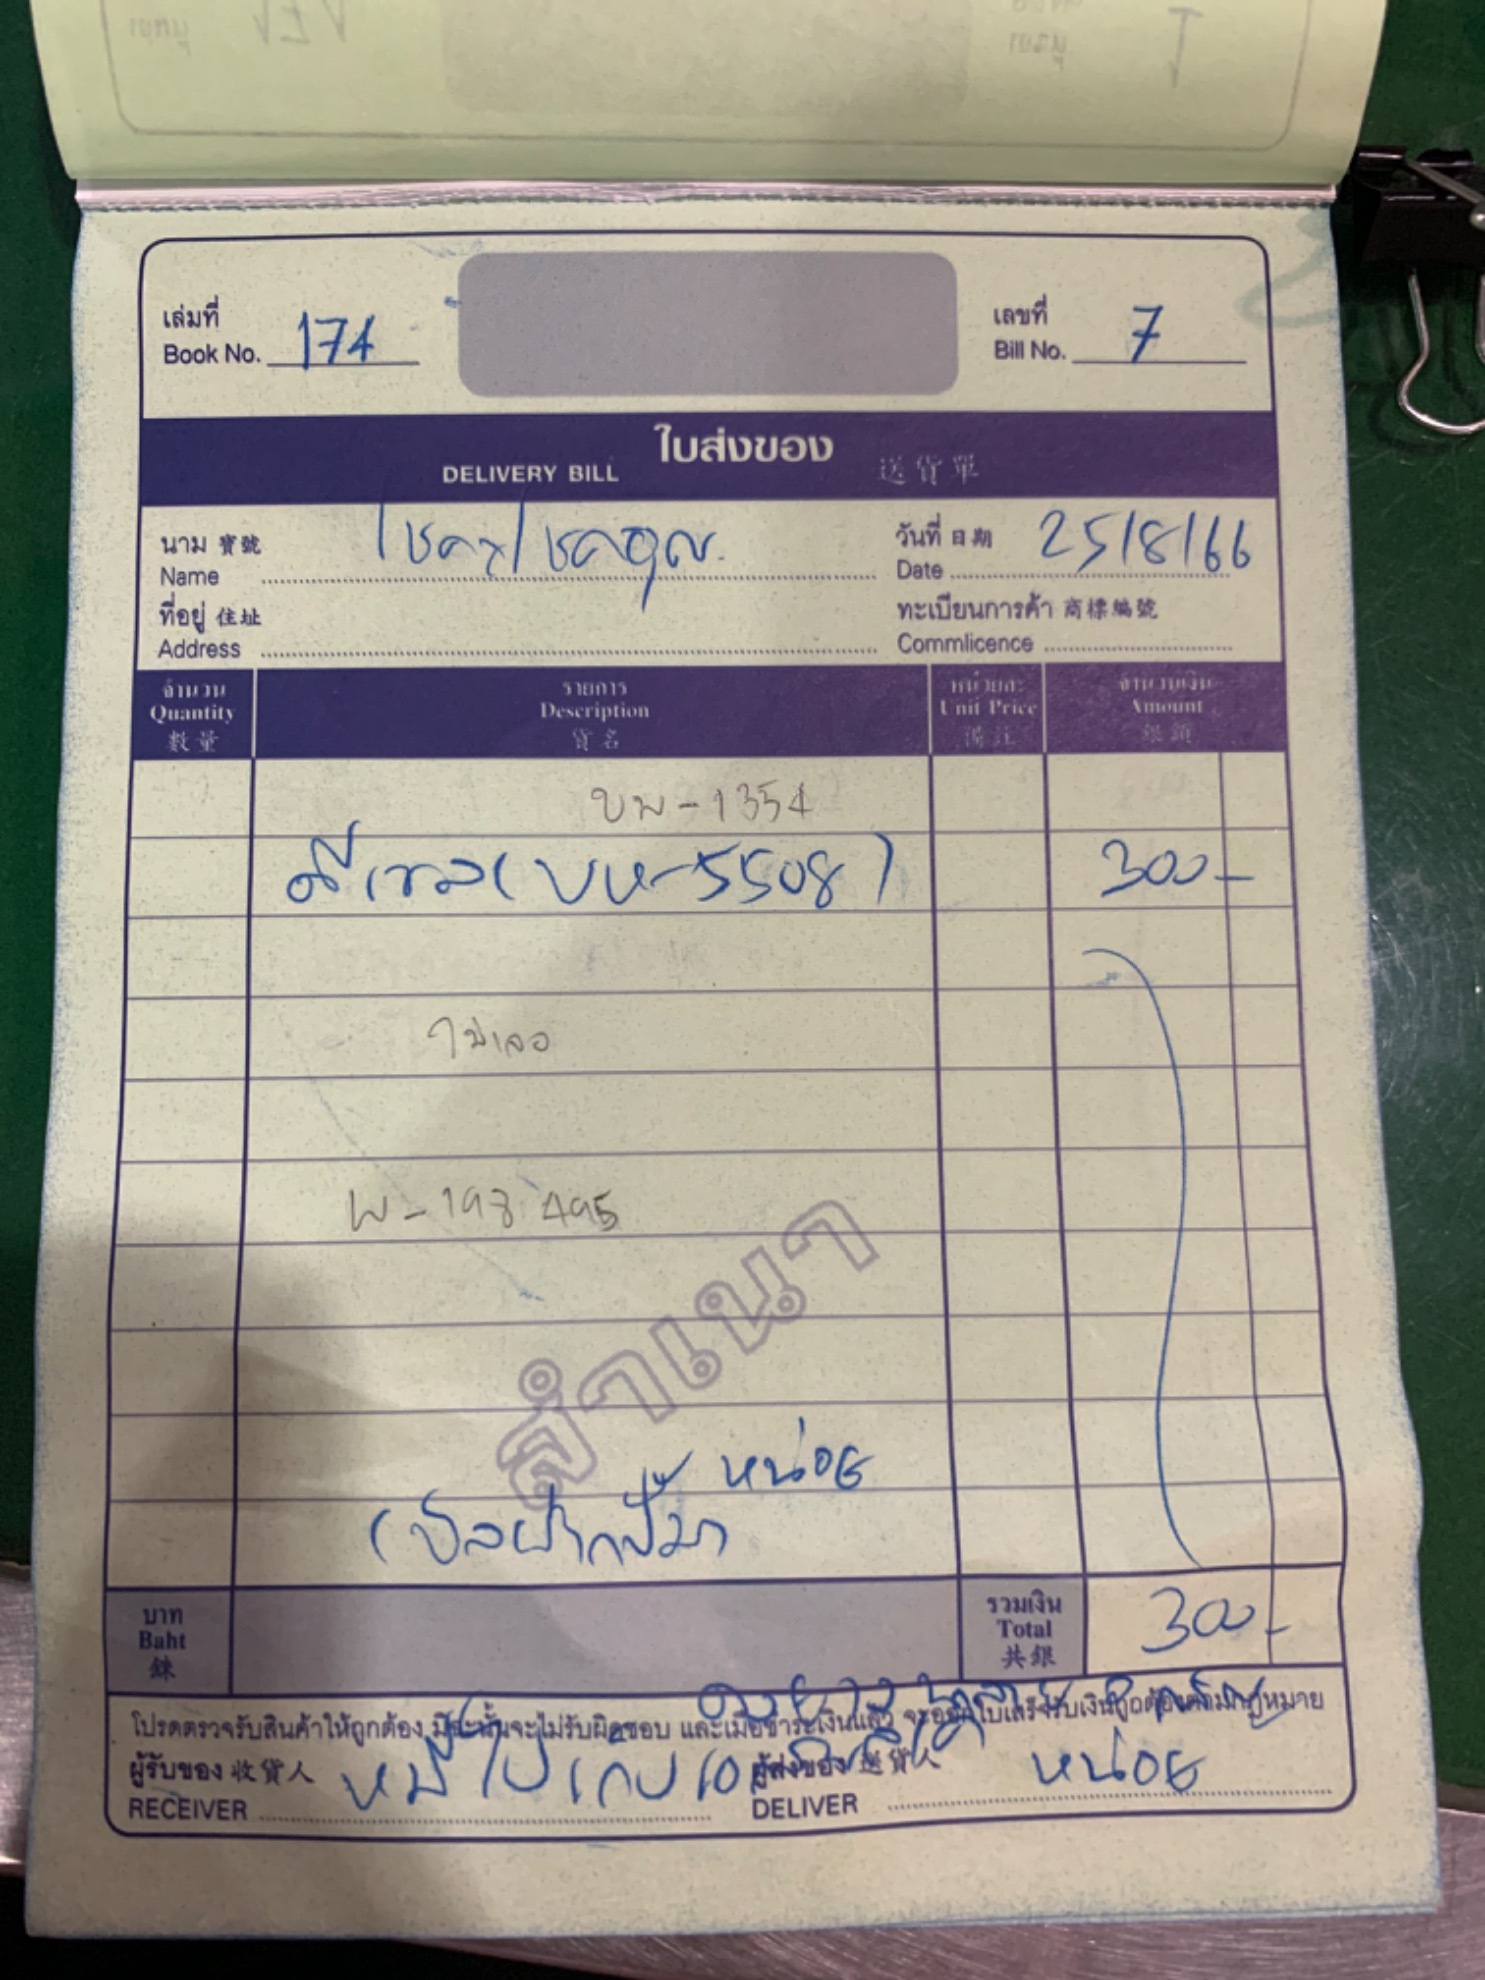 เล่มที่
Book No. 174
เลขที่
Bill No. 7
ใบส่งของ
DELIVERY BILL 送貨單
นาม 寶號
Name
วันที่ 日期 25/8/66
Date
ที่อยู่ 住址
Address
ทะเบียนการค้า 商標編號
Commlicence
จำนวน รายการ หน่วยละ จำนวนเงิน
Quantity Description Unit Price Amount
數量 貨名 備註 銀額
บพ-1354
ดีเซล (บห-5508) 300-
ไม่เจอ
สำเนา
หน่อย
(บิลฝากปั๊มา
บาท
Baht
銖
รวมเงิน
Total 300-
共銀
โปรดตรวจรับสินค้าให้ถูกต้อง มิฉะนั้นจะไม่รับผิดชอบ และเมื่อชำระเงินแล้ว จะออกใบเสร็จรับเงินถูกต้องตามกฎหมาย
ผู้รับของ 收貨人
RECEIVER
ผู้ส่งของ 送貨人 หน่อย
DELIVER